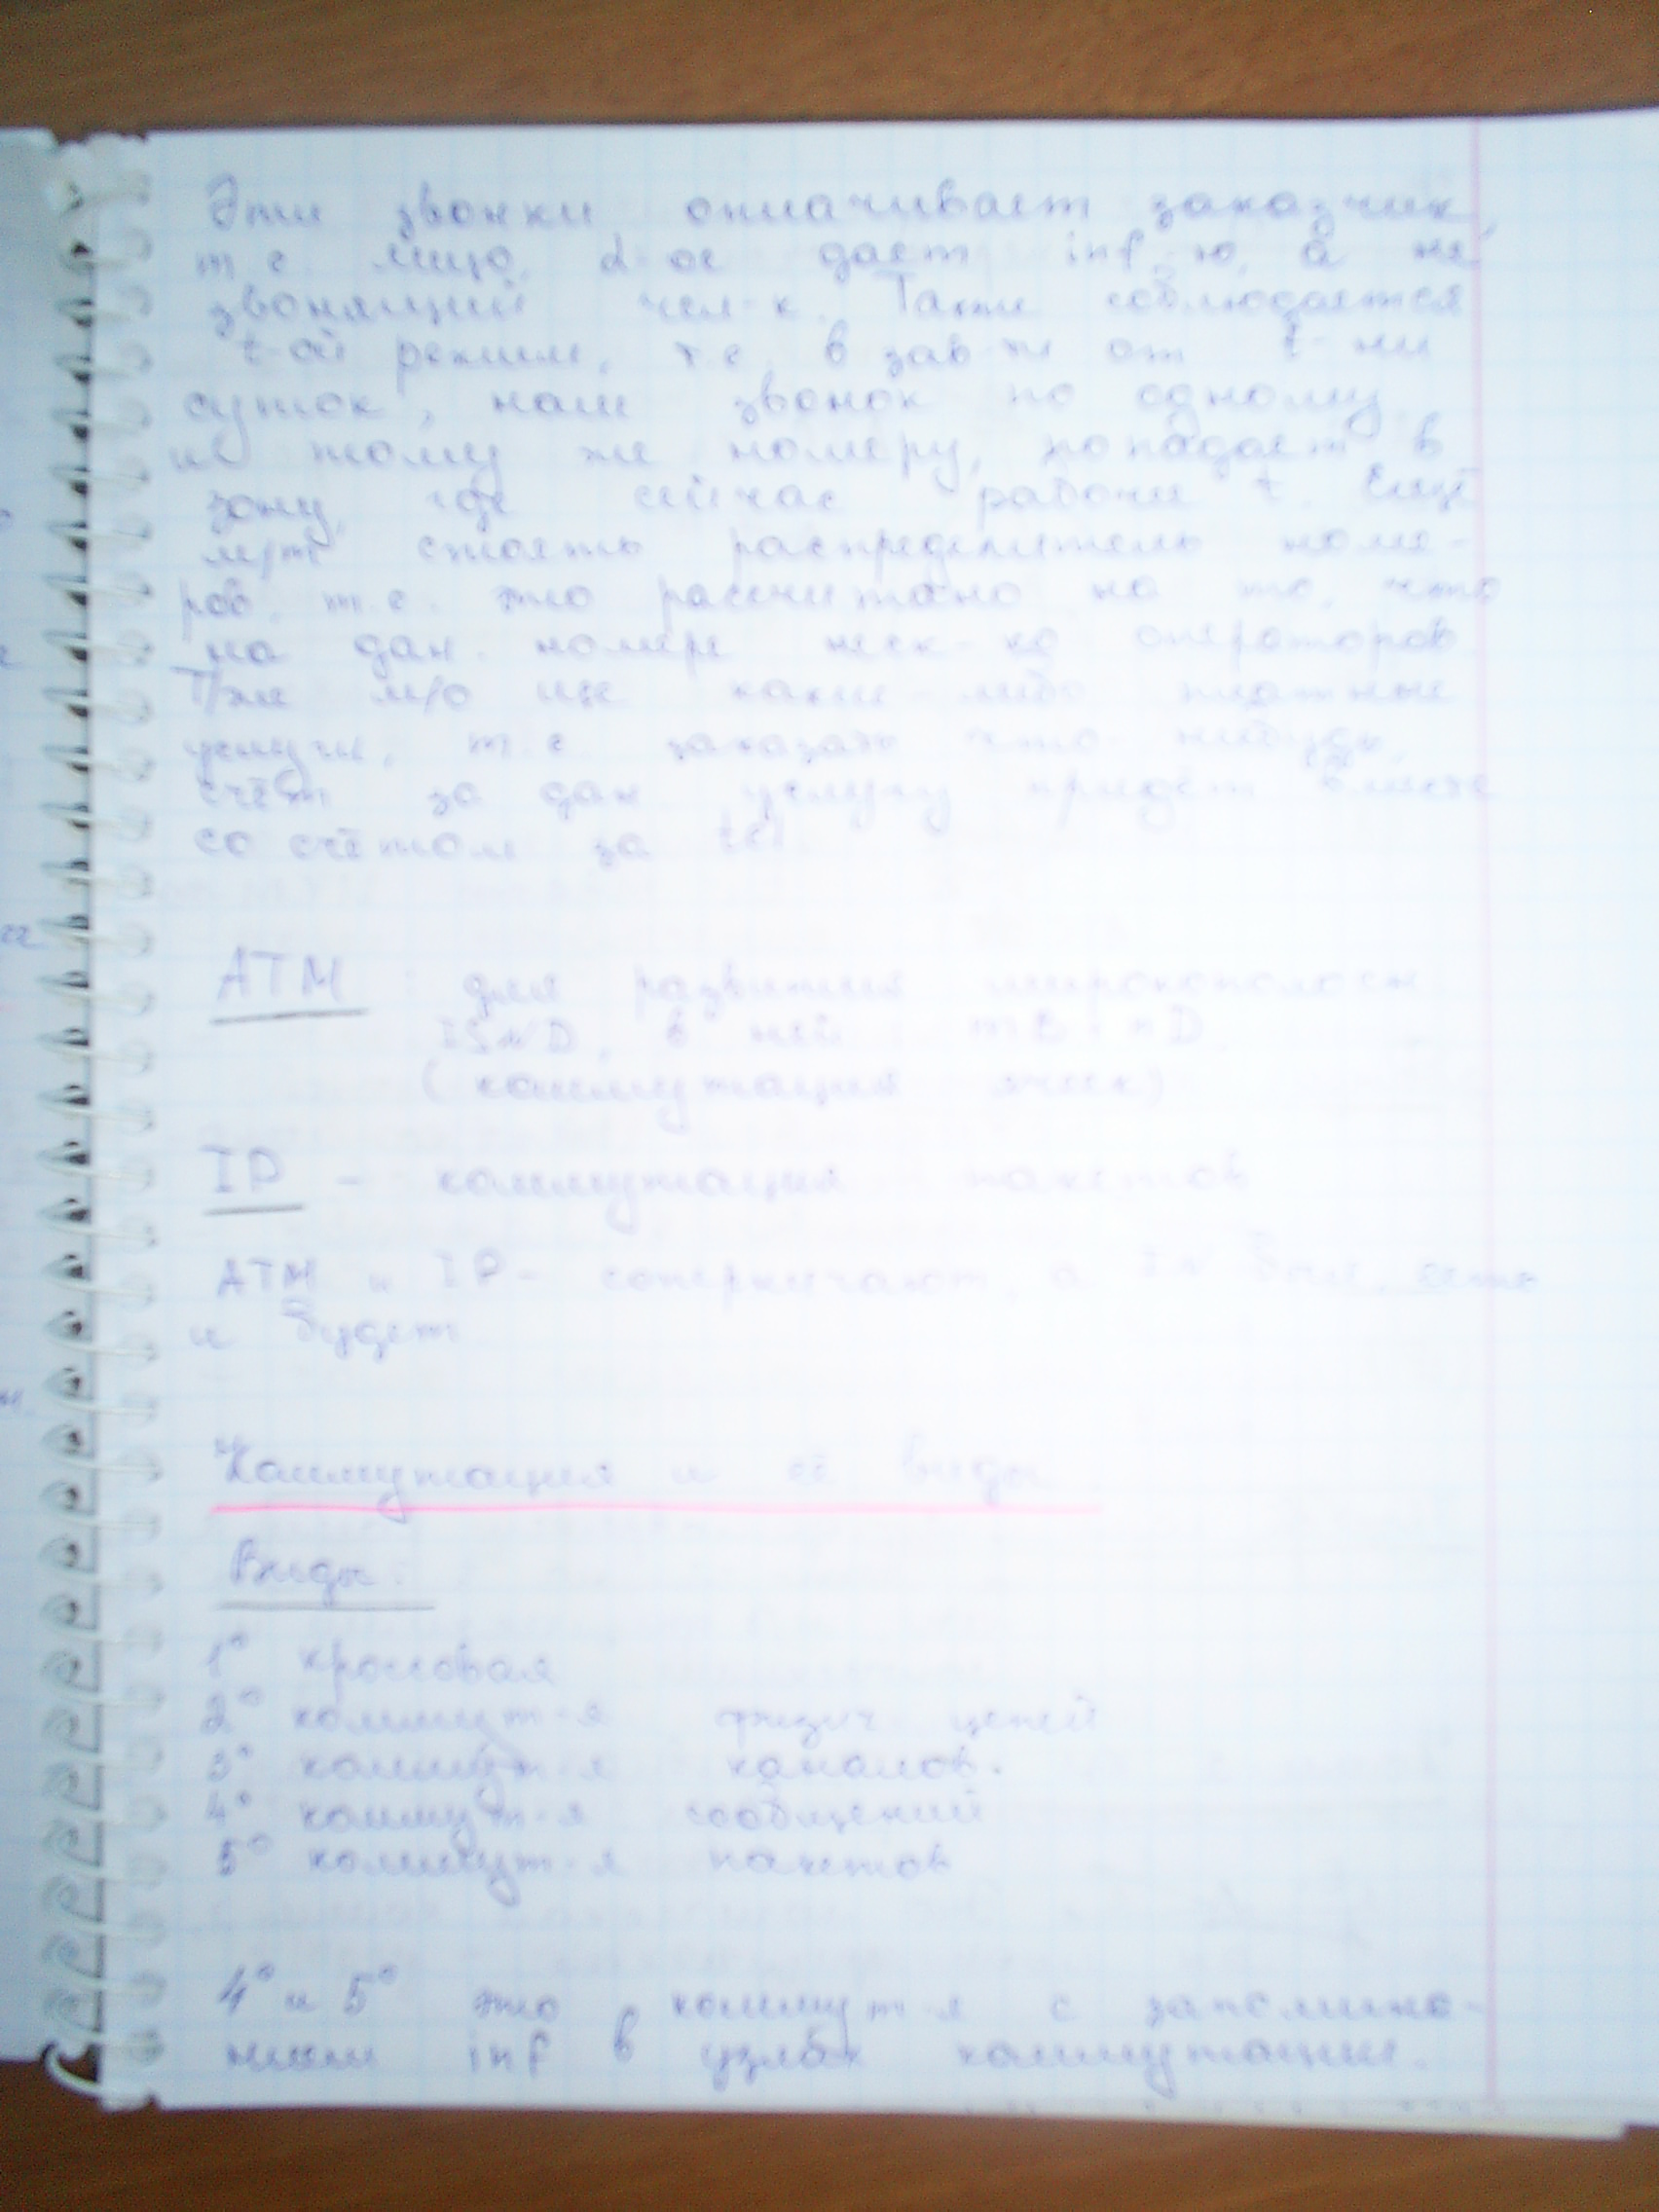 Эти звонки оплачивает заказчик,
т.е. лицо, к-ое даёт inf-ю, а не
звонящий чел-к. Также соблюдается
t-ой режим, т.е. в зав-ти от t-ни
суток, наш звонок по одному
и тому же номеру, попадает в
зону, где сейчас рабочее t. Ещё
м/т стоять распределитель номе-
ров, т.е. это рассчитано на то, что
на дан. номере неск-ко операторов.
м/о какие-либо платные
услуги, т.е. заказать что-нибудь,
счёт за дан услугу придёт вместе
со счётом за tel.
ATM : для развития широкополосн
ISND, в ней : mB + nD.
(коммутация ячеек)
IP - коммутация пакетов
ATM и IP - соперничают, а IN был, есть
и будет
Коммутация и её виды.
Виды:
1° кроссовая
2° коммут-я физич. цепей
3° коммут-я каналов.
4° коммут-я сообщений
5° коммут-я пакетов
4° и 5° это коммут-я с запомина-
нием inf в узлах коммутации.